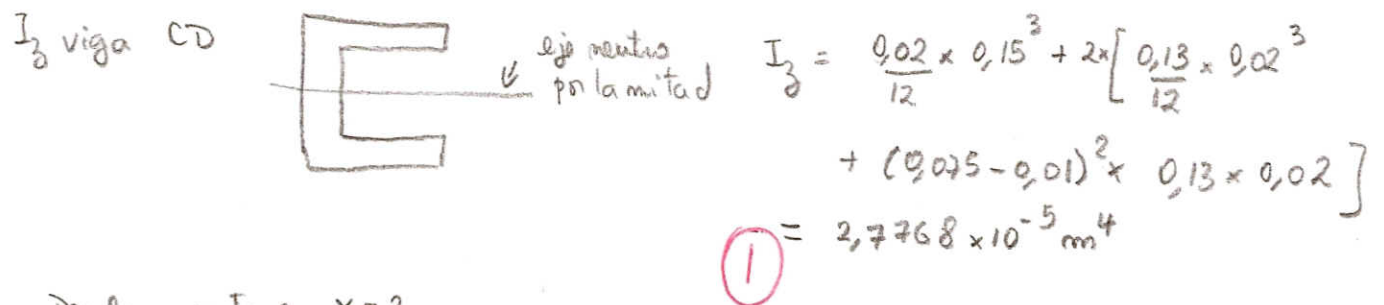 I_z viga CD
eje neutro
por la mitad
I_z = 0,02/12 × 0,15³ + 2×[ 0,13/12 × 0,02³
+ (0,075-0,01)² × 0,13 × 0,02 ]
= 2,7768 × 10⁻⁵ m⁴
1